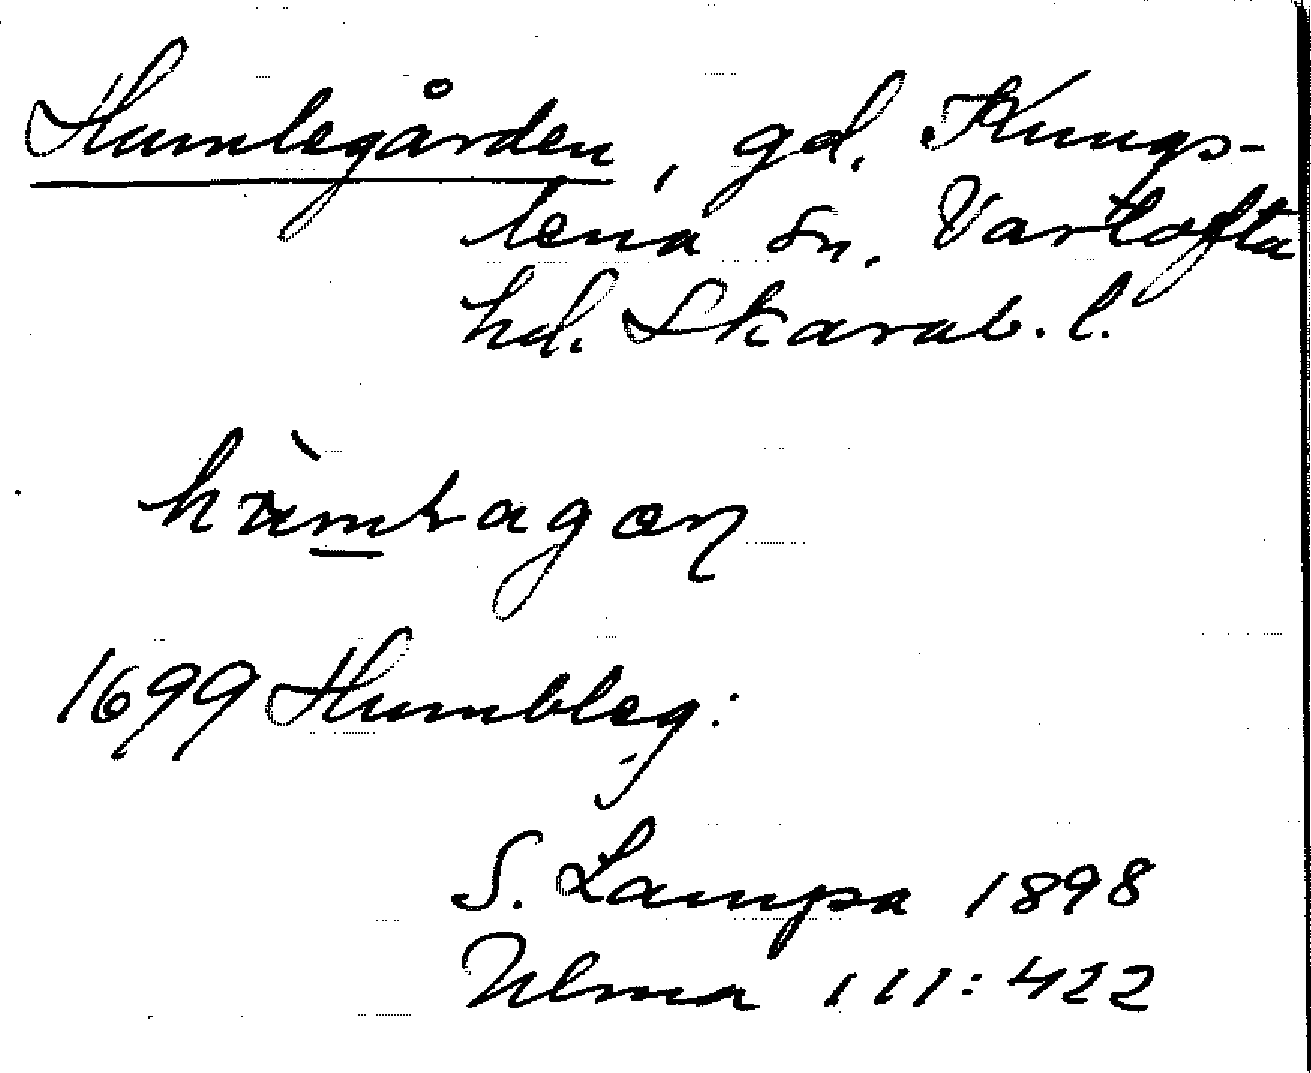 Humlegården, gd. Kungs-
lena sn. Vartofta
hd. Skarab. l.
1699 Humbleg:
S. Lampa 1898
Ulma 111:422